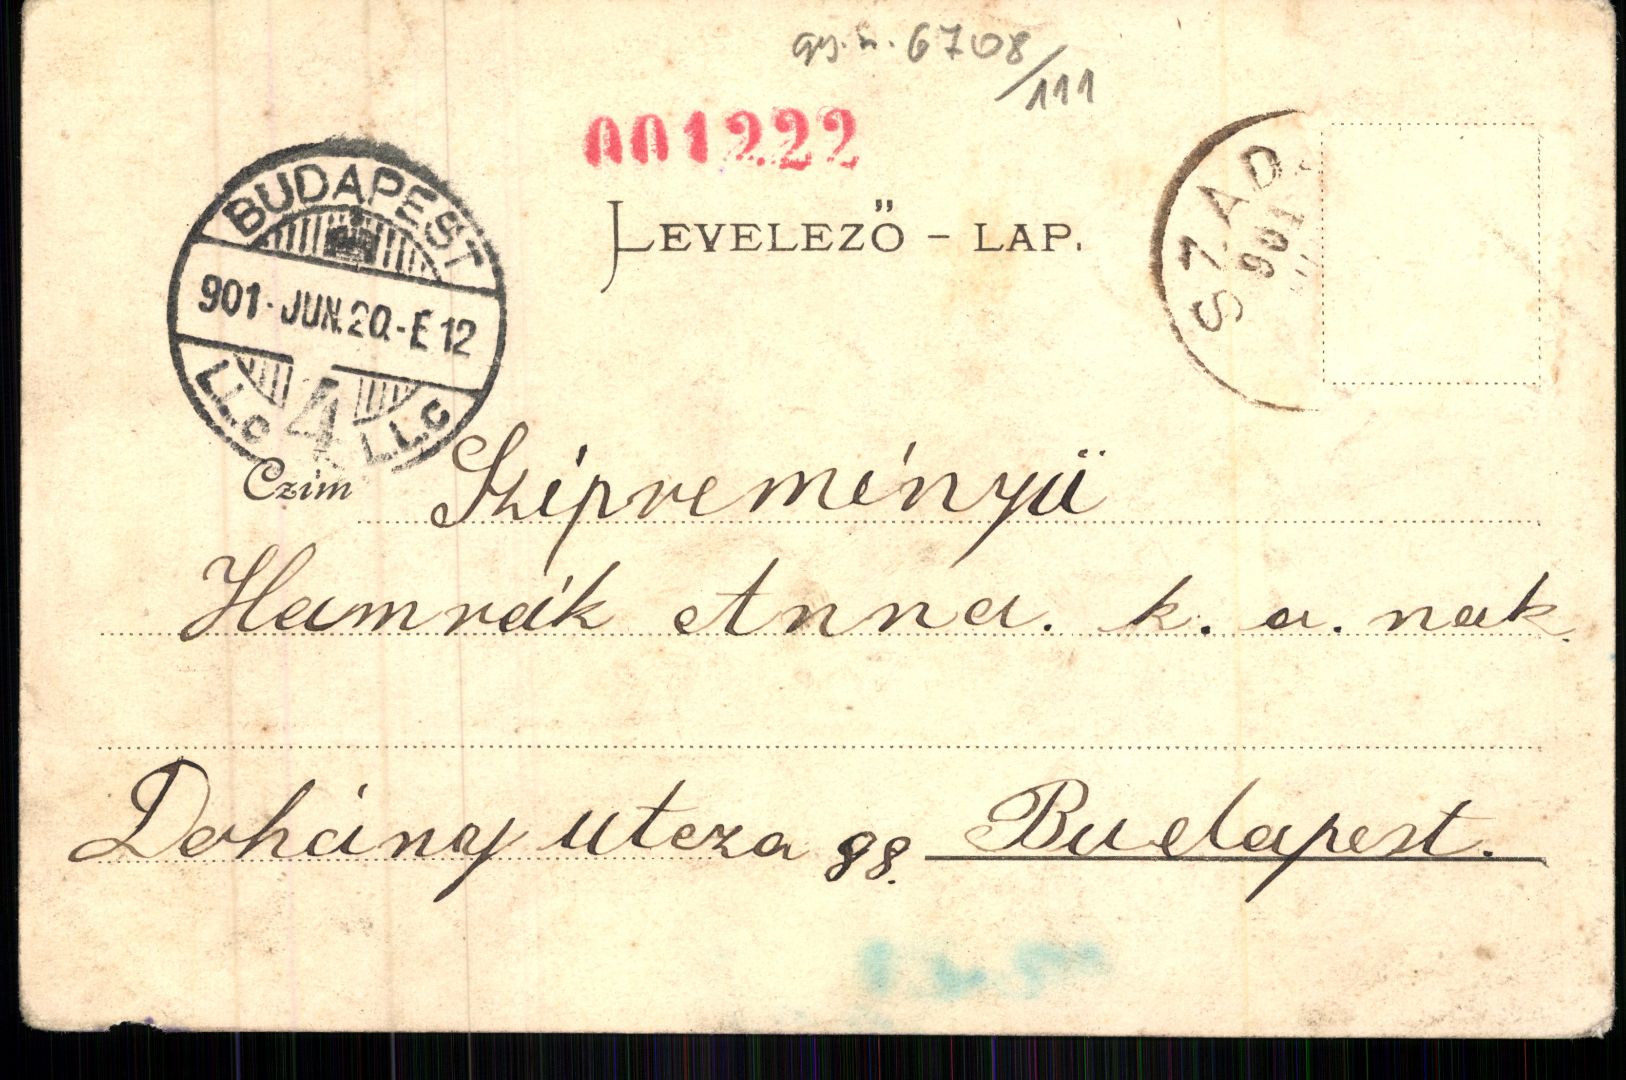 gy.n. 6708/111
001222
LEVELEZŐ - LAP.
BUDAPEST
901 - JUN. 20. - E 12
4
SZAD
901
Czim
Szépreményü
Hamrák Anna. k. a. nak.
Dohány utcza 98. Budapest.